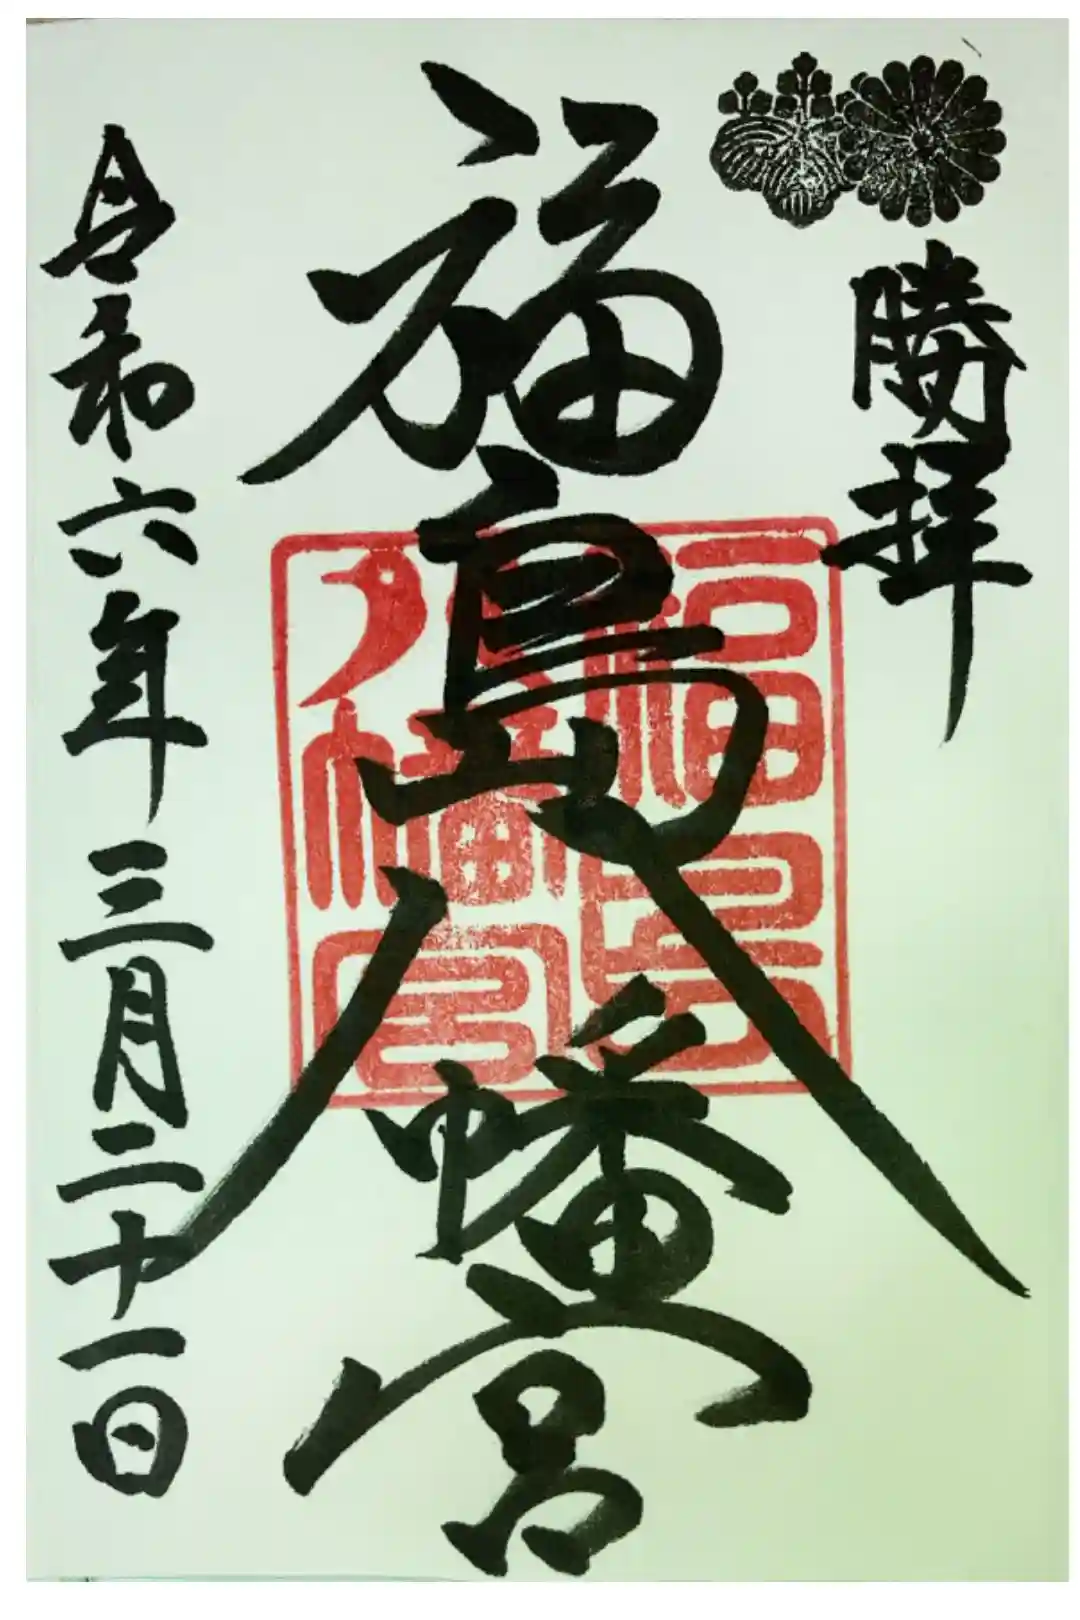 勝拝
福島八幡宮
福島
八幡宮
令和六年三月二十一日